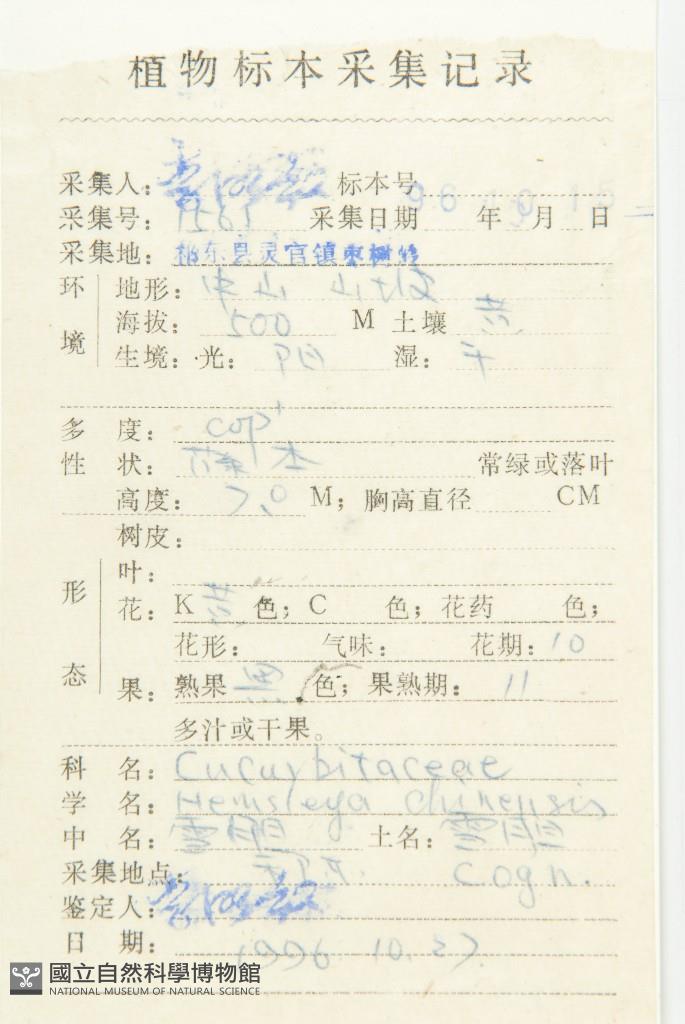 植物标本采集记录
采集人： 标本号
采集号： 采集日期 96 10 10 年 月 日
采集地： 祁东县灵官镇枣树
环境 地形： 中山 山坡
海拔： 500 M 土壤 黄
生境：光： 阳 湿： 干
多度： cop+
性状： 藤本 常绿或落叶
高度： 7.0 M；胸高直径 CM
树皮：
形态 叶：
花：K 黄 色；C 色；花药 色；
花形： 气味： 花期：10
果：熟果 黑 色；果熟期： 11
多汁或干果。
科名： Cucurbitaceae
学名： Hemsleya chinensis
中名： 雪胆 土名： 雪胆
采集地点： 祁阳. Cogn.
鉴定人：
日期： 1996 10. 27.
國立自然科學博物館
NATIONAL MUSEUM OF NATURAL SCIENCE